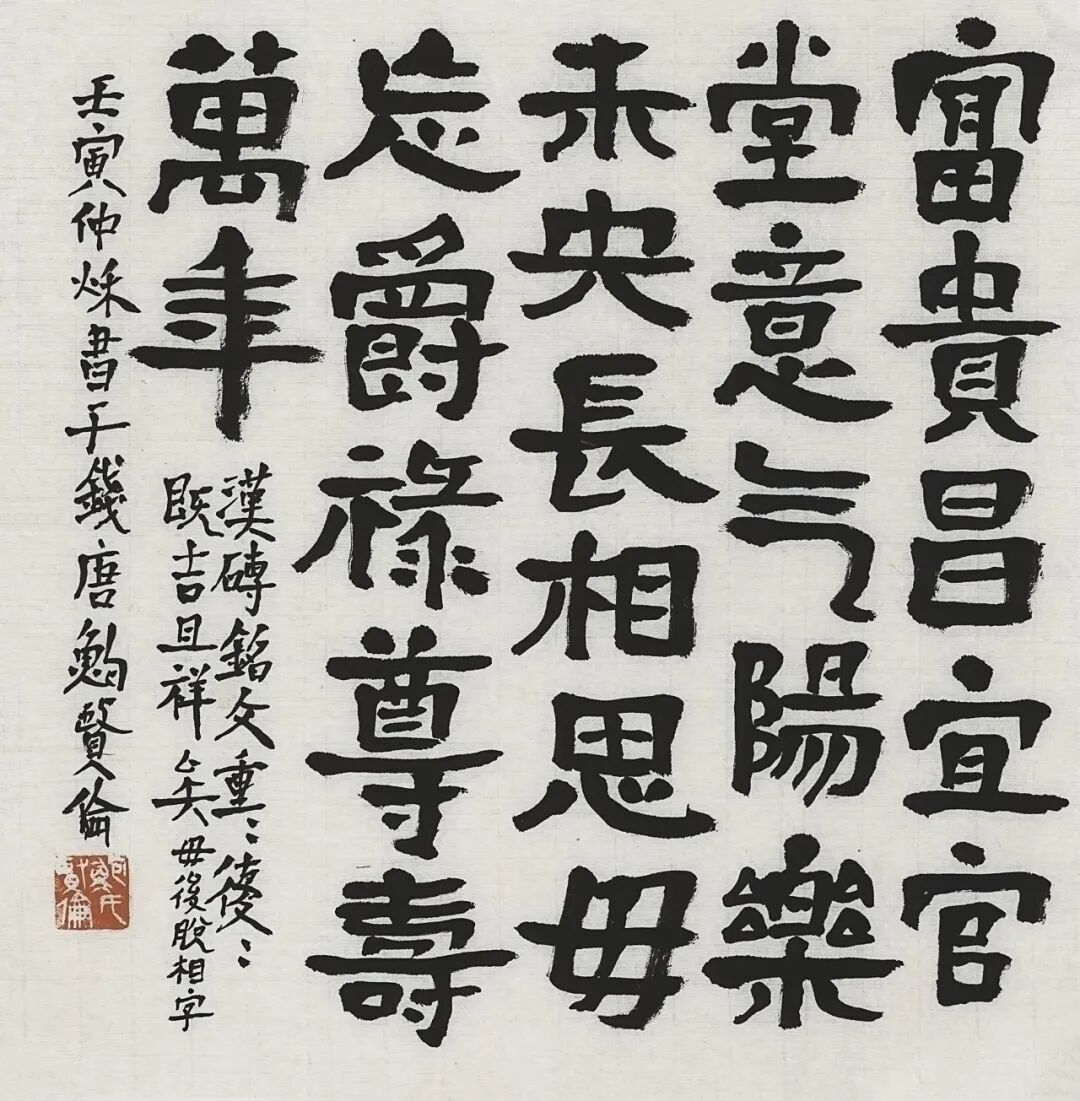 富貴昌宜官
堂意气陽樂
未央長相思毋
忘爵祿尊壽
萬年
漢磚銘文重〻復〻
既吉且祥矣毋後脫相字
壬寅仲秌書于錢唐鮑賢倫